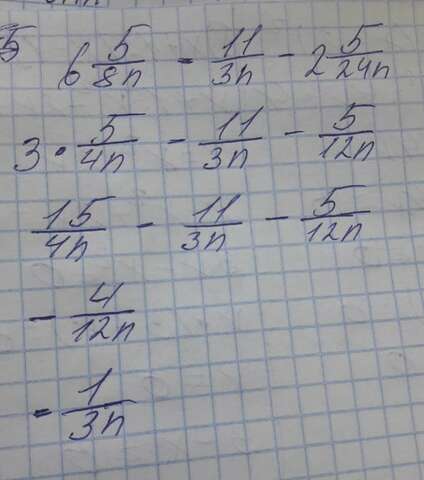 5 6 5/8n - 11/3n - 2 5/24n
3 · 5/4n - 11/3n - 5/12n
15/4n - 11/3n - 5/12n
- 4/12n
- 1/3n